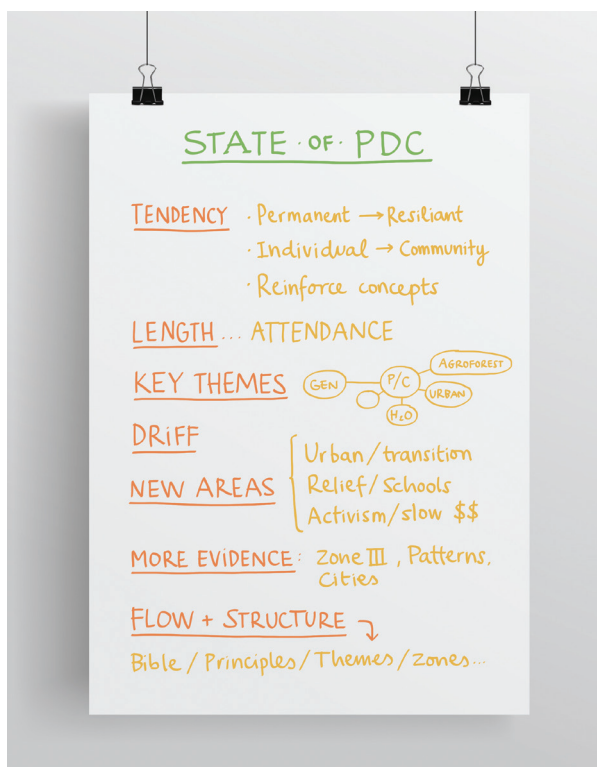 STATE · OF · PDC
TENDENCY · Permanent → Resiliant
· Individual → Community
· Reinforce concepts
LENGTH ... ATTENDANCE
KEY THEMES GEN P/C AGROFOREST
URBAN
H2O
DRiFF
Urban/transition
NEW AREAS Relief/Schools
Activism/slow $$
MORE EViDENCE: Zone III, Patterns,
Cities
FLOW + STRUCTURE
Bible / Principles / Themes / Zones...